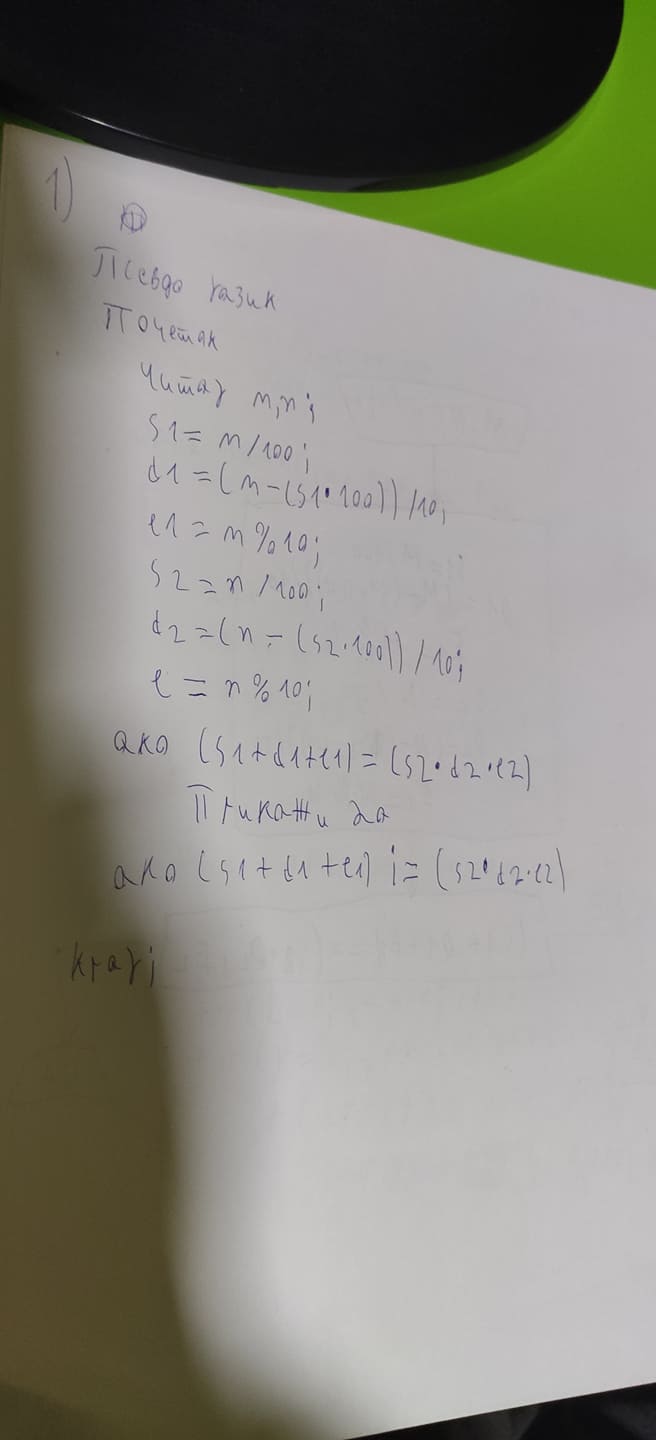 1)
Псевдо јазик
Почеток
Читај m,n;
s1= m/100;
d1=(m-(s1·100))/10;
e1=m%10;
s2=n/100;
d2=(n-(s2·100))/10;
e=n%10;
ако (s1+d1+e1)=(s2·d2·e2)
Прикажи да
ако (s1+d1+e1) i=(s2·d2·e2)
kraj;